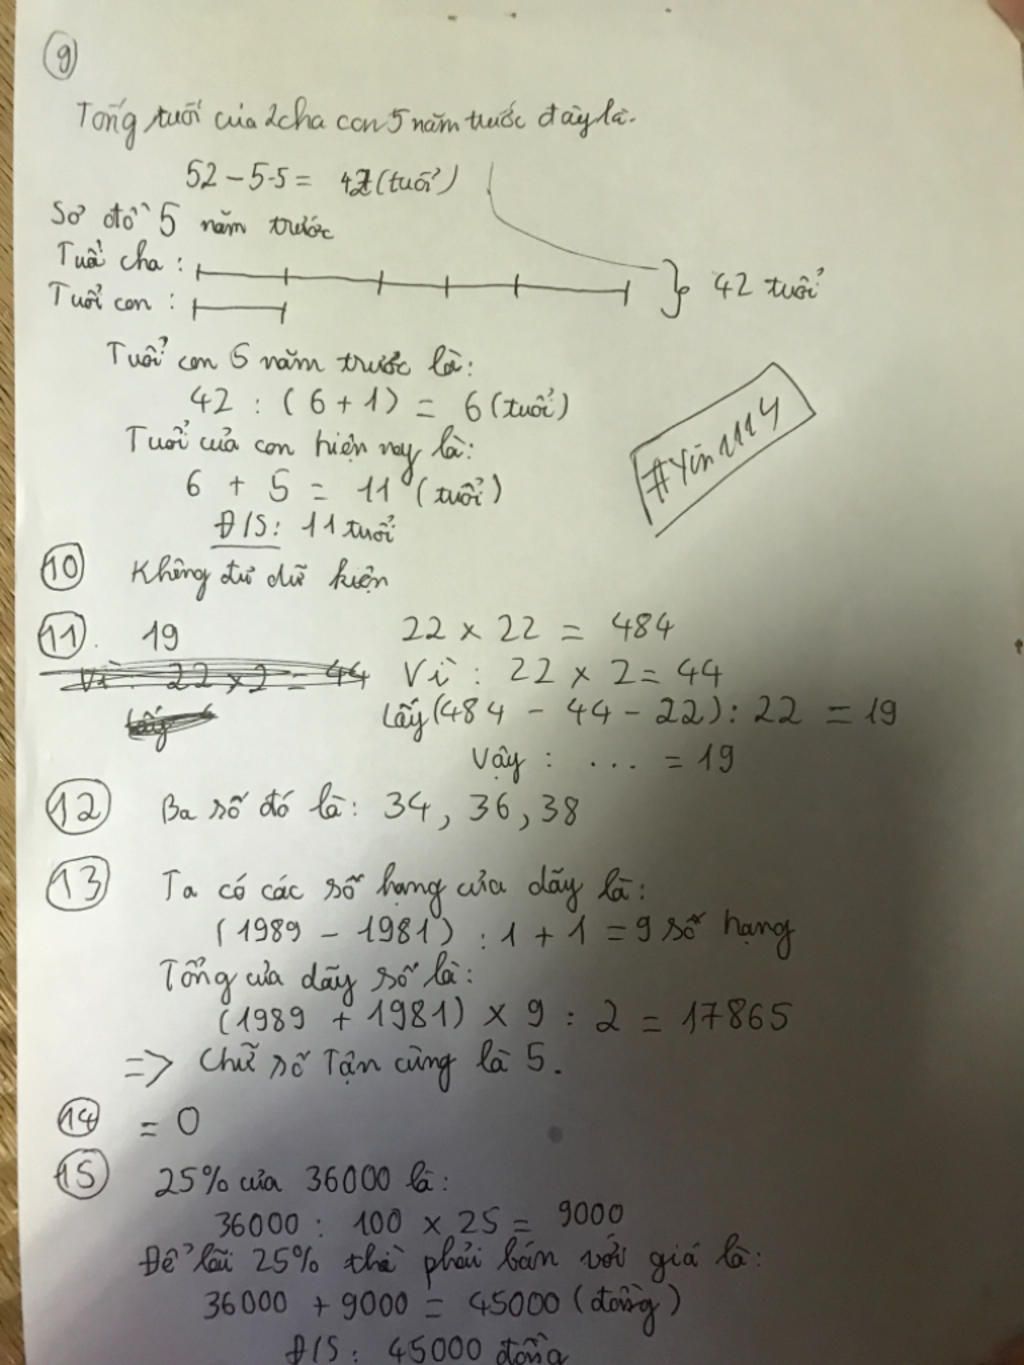 9
Tổng tuổi của 2 cha con 5 năm trước đây là.
52 - 5-5 = 42 (tuổi)
Sơ đồ 5 năm trước
Tuổi cha :
42 tuổi
Tuổi con :
Tuổi con 5 năm trước là:
42 : ( 6 + 1 ) = 6 (tuổi)
Tuổi của con hiện nay là:
6 + 5 = 11 (tuổi)
Đ/S: 11 tuổi
#Yin1114
10 Không đủ dữ kiện
11. 19 22 x 22 = 484
Vì : 22 x 2 = 44 Vì : 22 x 2 = 44
Lấy Lấy (484 - 44 - 22) : 22 = 19
Vậy : ... = 19
12 Ba số đó là: 34, 36, 38
13 Ta có các số hạng của dãy là:
(1989 - 1981) : 1 + 1 = 9 số hạng
Tổng của dãy số là:
(1989 + 1981) x 9 : 2 = 17865
=> Chữ số Tận cùng là 5.
14 = 0
15 25% của 36000 là:
36000 : 100 x 25 = 9000
Để lãi 25% thì phải bán với giá là:
36000 + 9000 = 45000 (đồng)
Đ/S: 45000 đồng